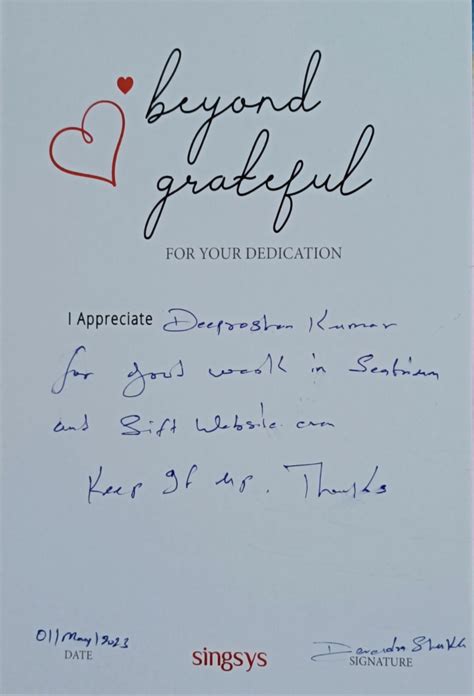 beyond
grateful
FOR YOUR DEDICATION
I Appreciate Kumar
for good work in
and Sift Website
Keep It up. Thanks
01/May/2023
DATE
singsys
SIGNATURE